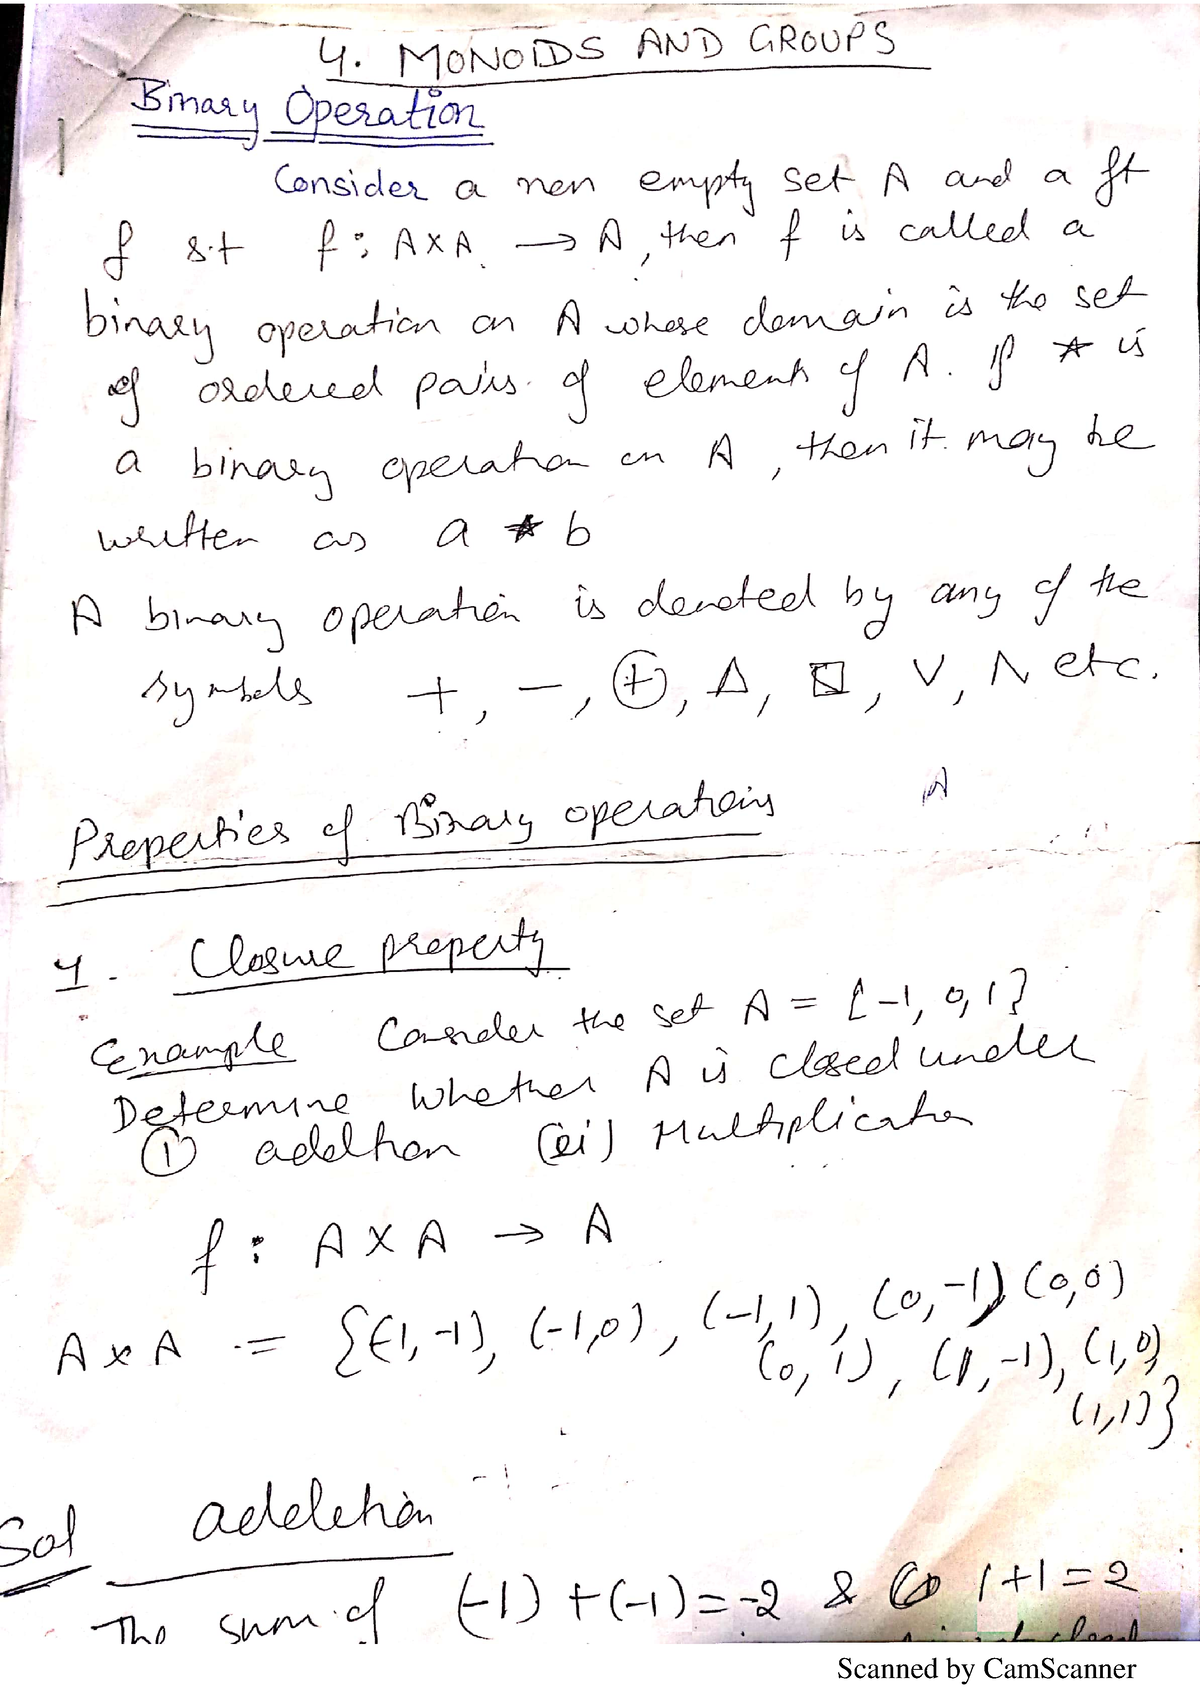 4. MONOIDS AND GROUPS
Binary Operation
Consider a non empty set A and a ft
f s.t f : A X A → A, then f is called a
binary operation on A whose domain is the set
of ordered pairs of elements of A. If * is
a binary operation on A, then it may be
written as a * b
A binary operation is denoted by any of the
symbols +, -, ⊕, Δ, V, Λ etc.
A
Properties of Binary operations
1. Closure property
Example Consider the set A = {-1, 0, 1}
Determine whether A is closed under
(i) addition (ii) Multiplication
f : A X A → A
A x A = {(-1, -1), (-1, 0), (-1, 1), (0, -1) (0, 0)
(0, 1), (1, -1), (1, 0)
(1, 1)}
Sol addition
The sum of (-1) + (-1) = -2 & 1+1 = 2
Scanned by CamScanner